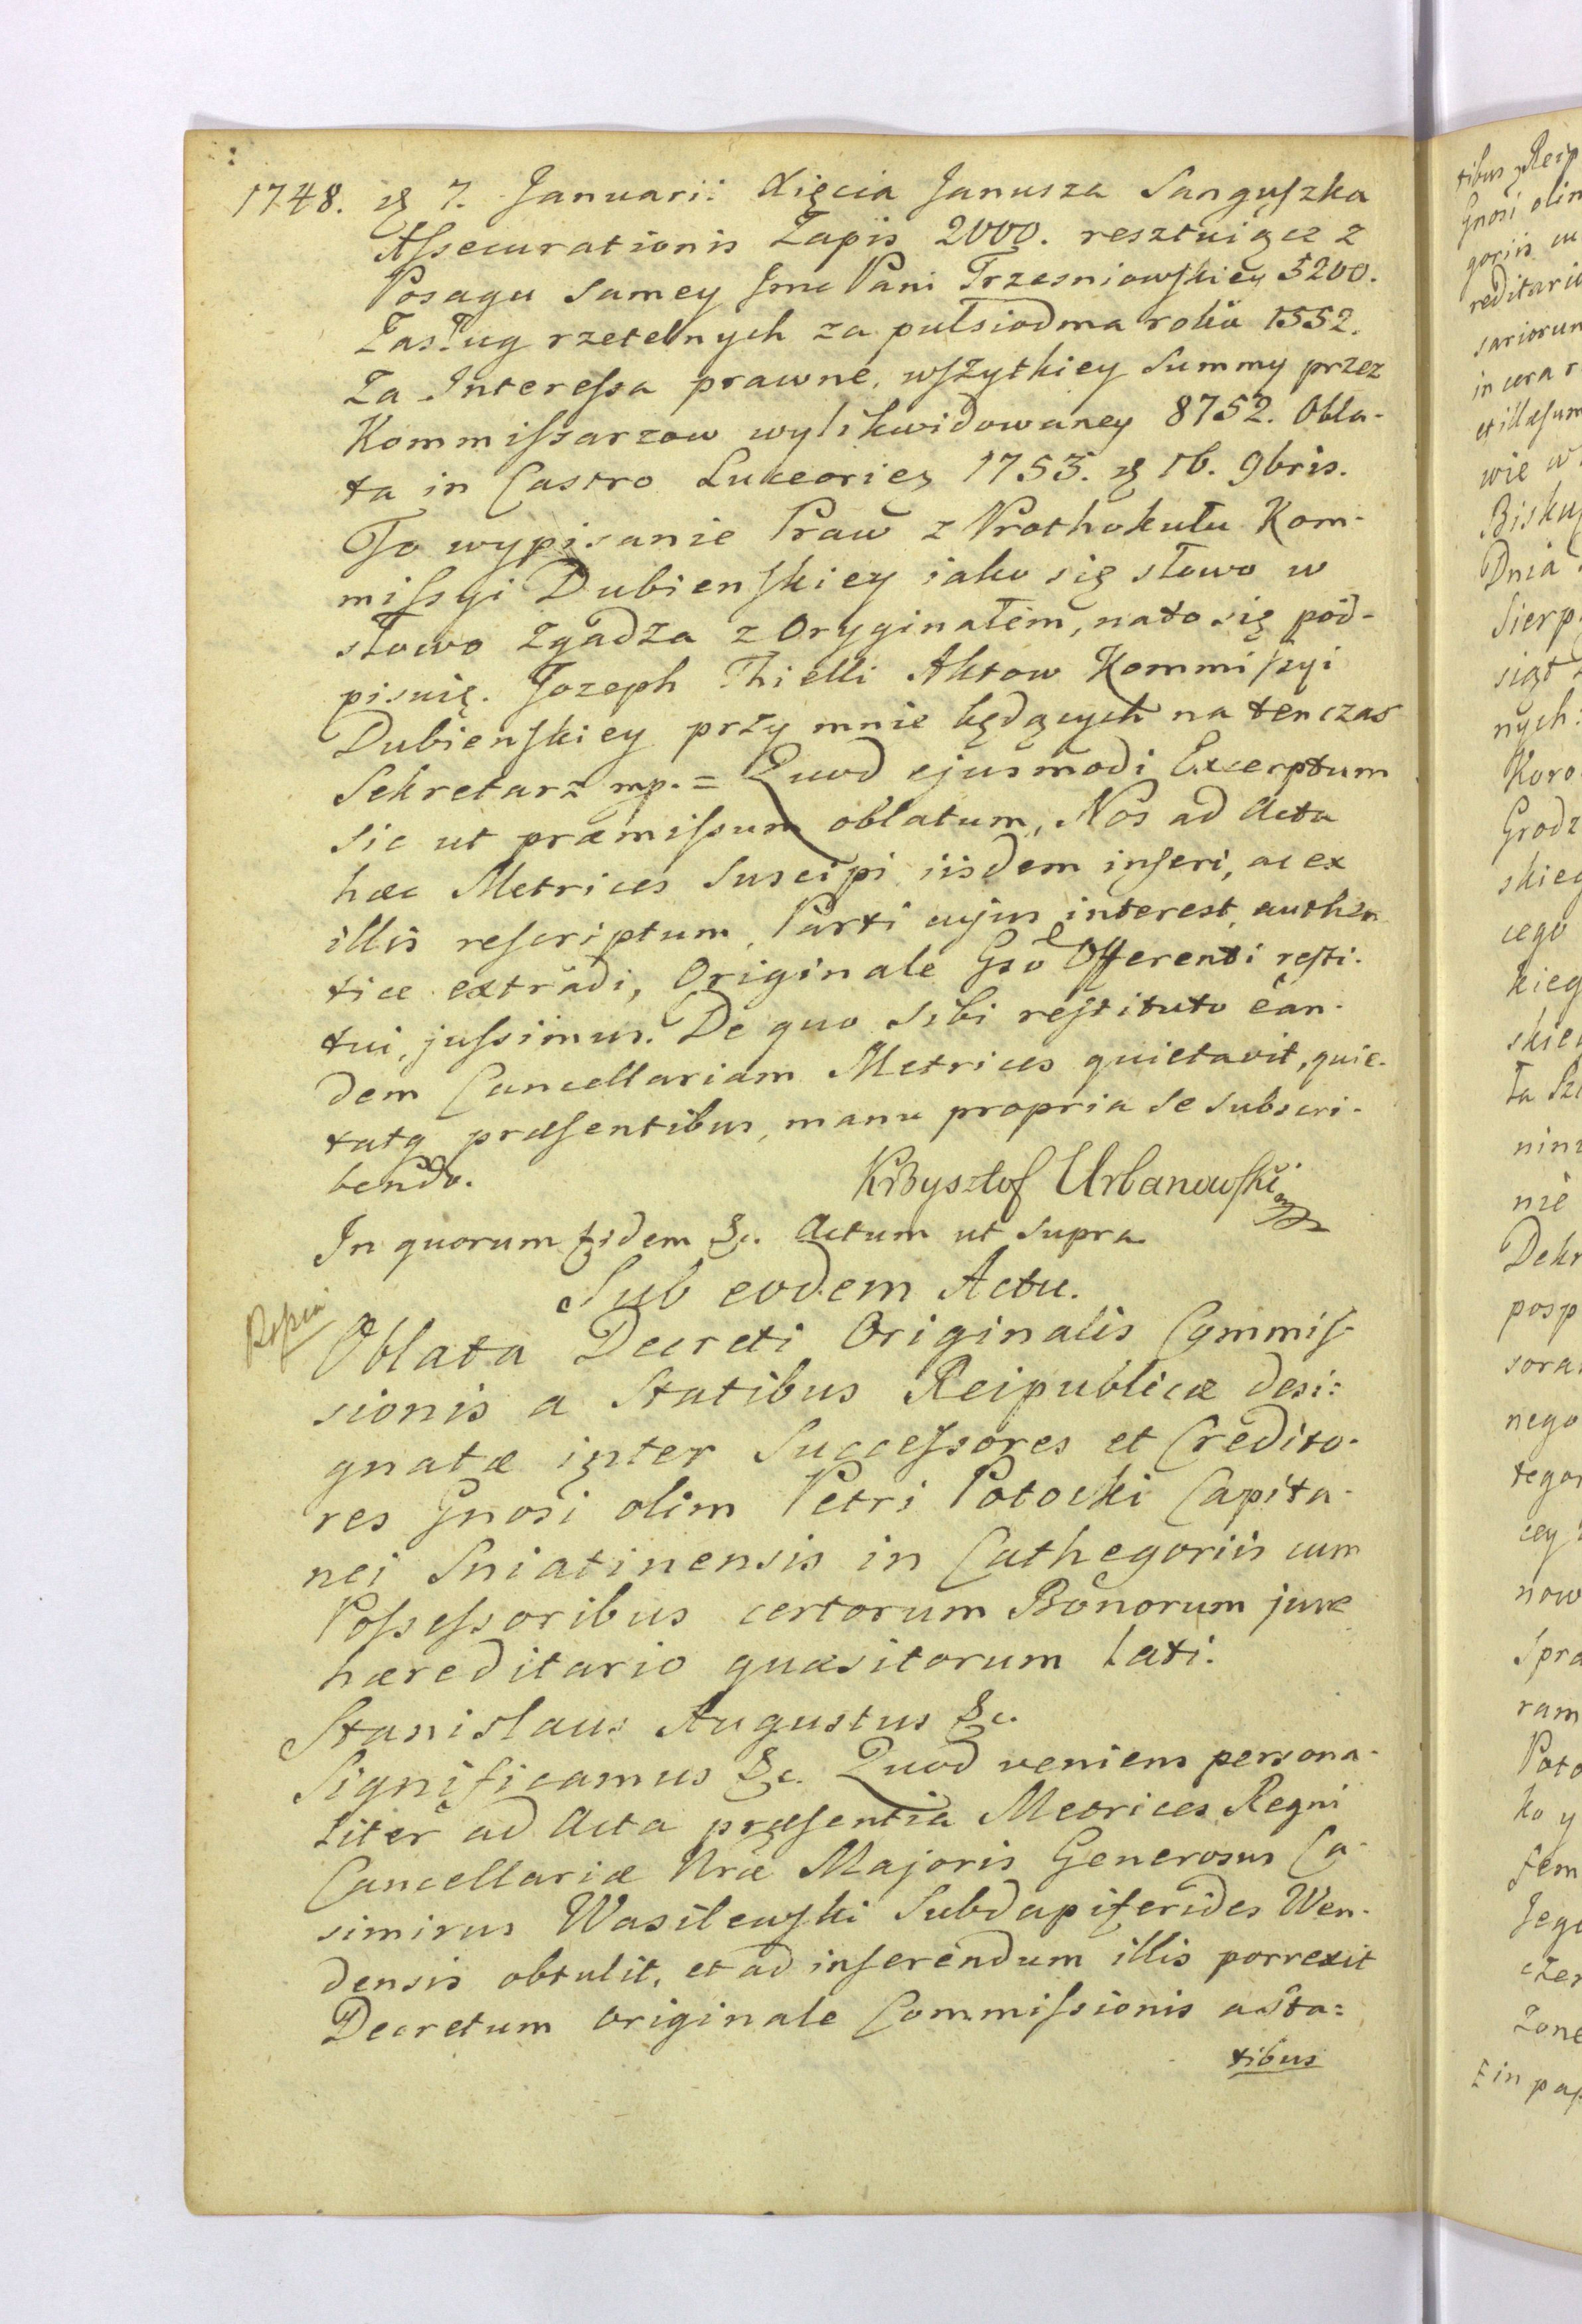 1748. d 7. Januarii Xięcia Janusza Sanguszka
Assecurationis Zapis 2000. resztuiące z
Posagu samey Jmc Pani Trzesniowskiey 5200.
Zasług rzetelnych za pułsiodma roku 1552.
Za Interessa prawne, wszytkiey Summy przez
Kommissarzow wylikwidowaney 8752. Obla-
ta in Castro Luceorien 1753. d 16. 9bris.
To wypisanie Praw z Prothokułu Kom-
missyi Dubienskiey iako się słowo w
słowo zgadza z Oryginałem, na to się pod-
pisuię. Jozeph Thielli Aktow Kommissyi
Dubienskiey przy mnie będących na ten czas
Sekretarz mp. = Quod ejusmodi Excerptum
sic ut præmissum oblatum, Nos ad Acta
hæc Metrices suscipi iisdem inseri, ac ex
illis rescriptum, Parti cujus interest, authen
tice extradi, Originale Gso Offerenti resti-
tui, jussimus. De quo sibi restituto ean-
dem Cancellariam Metrices quietavit, quie-
tatq præsentibus, manu propria se subscri-
bendo. Krzysztof Urbanowski mp
In quorum fidem &c. Actum ut supra
Sub eodem Actu.
Oblata Decreti Originalis Commis-
sionis a Statibus Reipublicæ desi=
gnatæ inter Successores et Credito-
res Gnosi olim Petri Potocki Capita-
nei Sniatinensis in Cathegoriis cum
Possessoribus certorum Bonorum jure
hæreditario quæsitorum lati.
Stanislaus Augustus &c.
Significamus &c. Quod veniens persona-
liter ad Acta præsentia Metrices Regni
Cancellariæ Nræ Majoris Generosus Ca-
simirus Wasilewski Subdapiferides Wen-
densis obtulit, et ad inserendum illis porrexit
Decretum originale Commissionis a Sta=
tibus